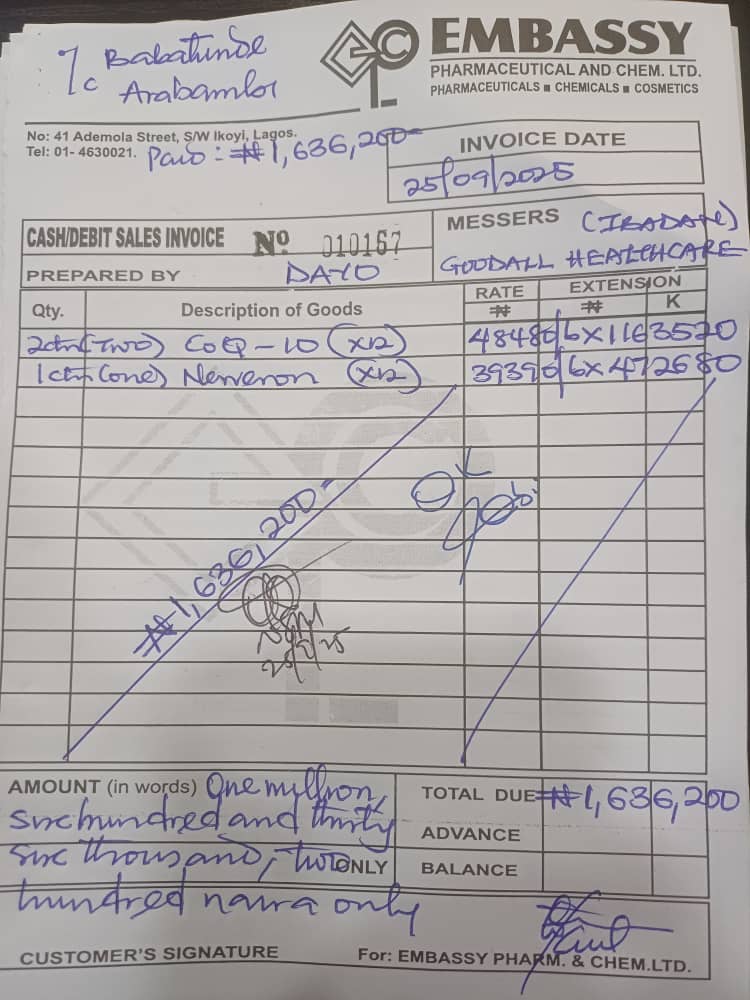 EMBASSY
PHARMACEUTICAL AND CHEM. LTD.
PHARMACEUTICALS ■ CHEMICALS ■ COSMETICS
℅ Babatunde
Arabambi
No: 41 Ademola Street, S/W Ikoyi, Lagos.
Tel: 01- 4630021.
Paid: ₦1,636,200-
INVOICE DATE
25/09/2025
CASH/DEBIT SALES INVOICE No 010167
PREPARED BY DAYO
MESSERS (IBADAN)
GOODALL HEALTHCARE
Qty. Description of Goods RATE ₦ EXTENSION ₦ K
2ctn (Two) CoQ-10 (x12) 48480/6x 1163520
1ctn (one) Nerveron (x12) 39390/6x 472680
₦1,636,200-
OK
AMOUNT (in words) One million
six hundred and thirty
six thousand, two ONLY
hundred naira only
TOTAL DUE ₦1,636,200
ADVANCE
BALANCE
CUSTOMER'S SIGNATURE
For: EMBASSY PHARM. & CHEM.LTD.